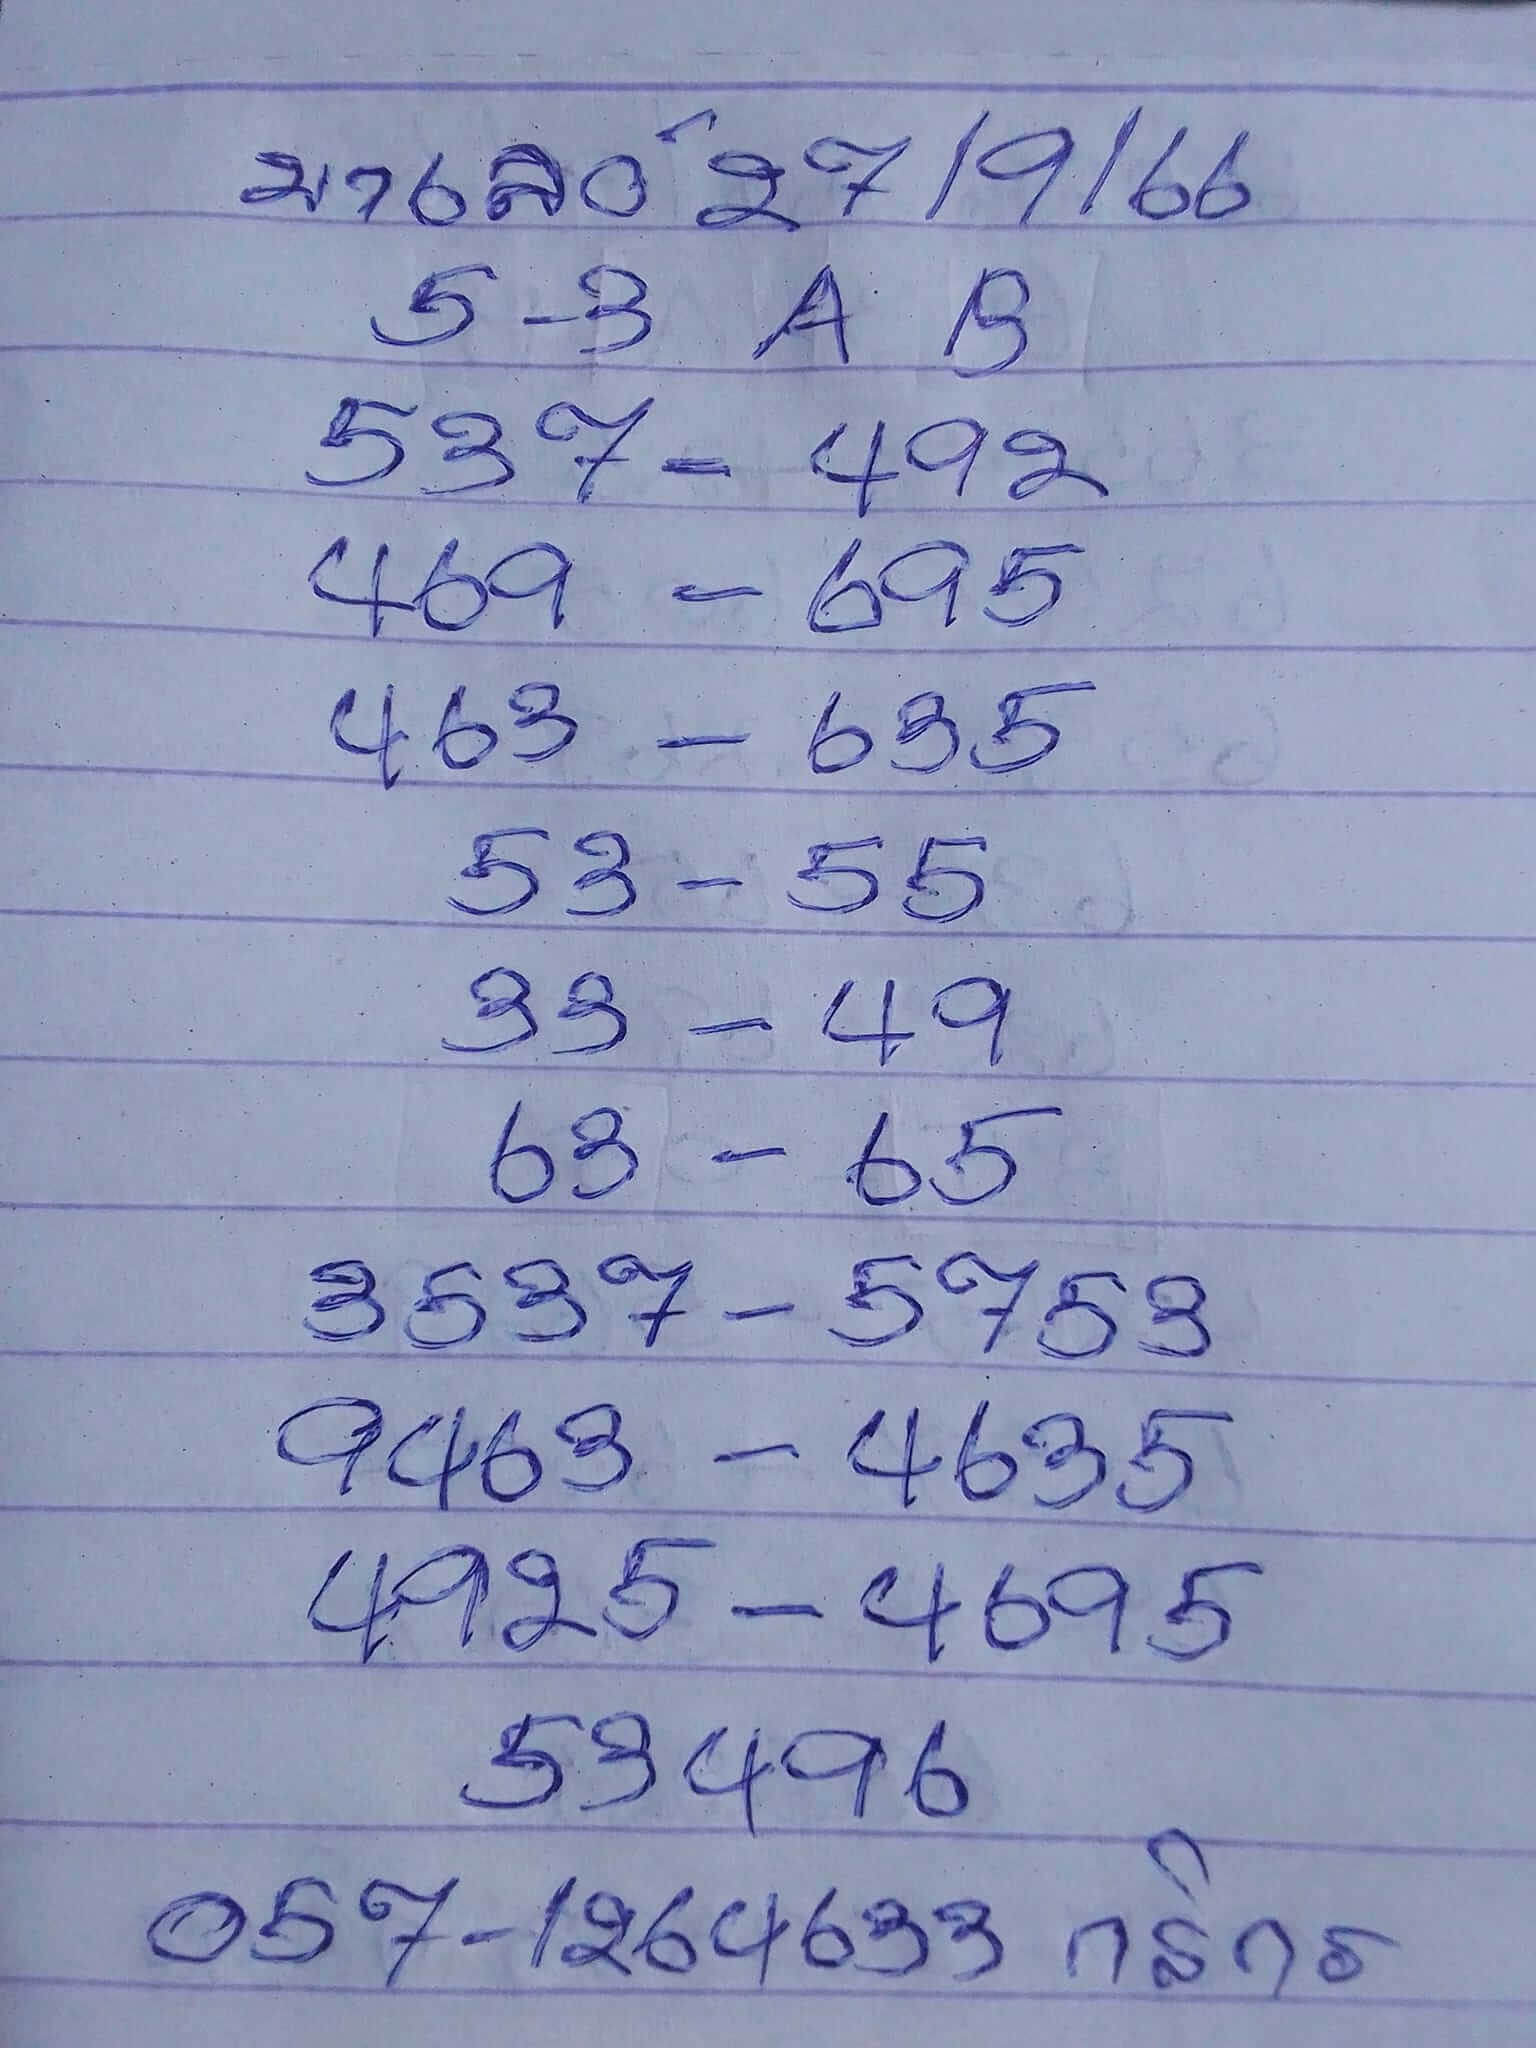 มาเลย์ 27/9/66
5-3 A B
537-492
469-695
463-635
53-55
33-49
63-65
3537-5753
9463-4635
4925-4695
53496
057-1264633 กสิกร